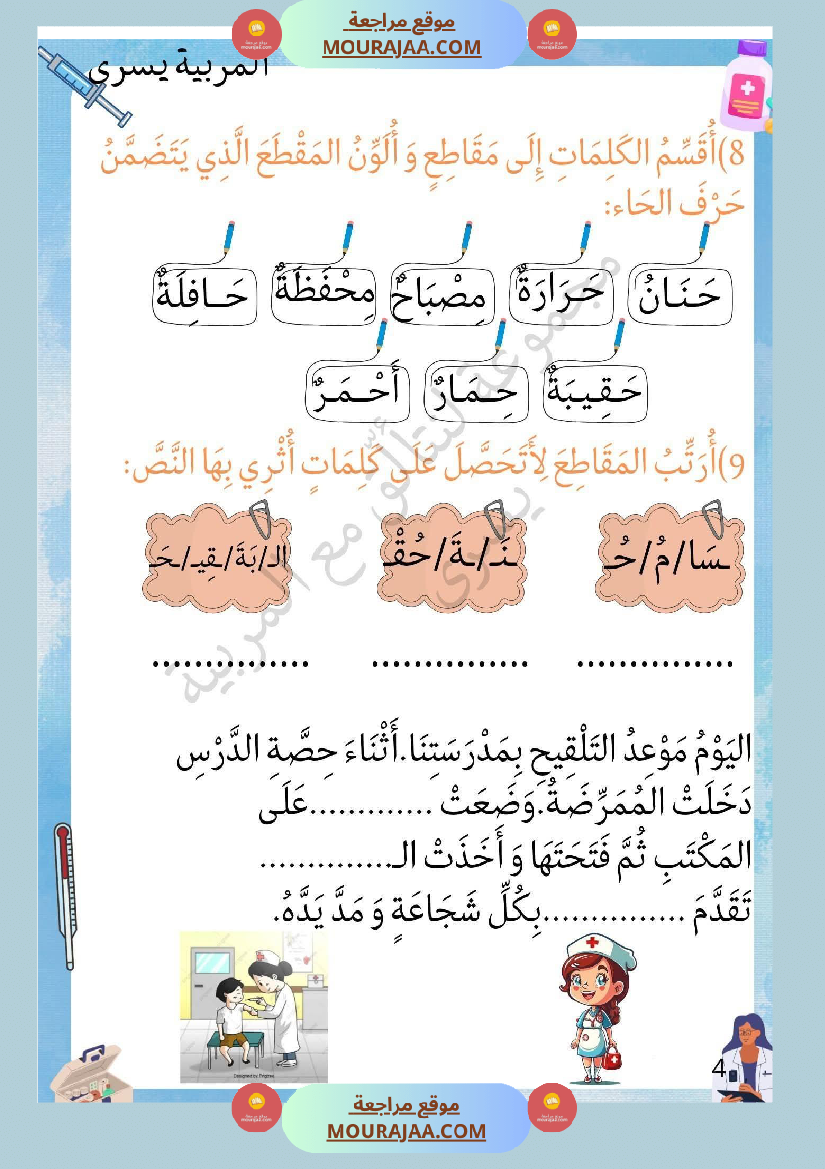 موقع مراجعة
MOURAJAA.COM
المربية يسرى
8)أُقَسِّمُ الكَلِمَاتِ إِلَى مَقَاطِعٍ وَ أُلَوِّنُ المَقْطَعَ الَّذِي يَتَضَمَّنُ
حَرْفَ الحَاء:
حَـنَـانُ حَـرَارَةٌ مِصْبَاحٌ مِحْفَظَةٌ حَــافِلَةٌ
حَـقِـيـبَةٌ حِــمَـارٌ أَحْــمَـرٌ
9)أُرَتِّبُ المَقَاطِعَ لِأَتَحَصَّلَ عَلَى كَلِمَاتٍ أُثْرِي بِهَا النَّصَّ:
ـسَا/مُ/حُـ ـنَـ/ـةَ/حُقْـ الـ/بَةَ/ـقِيـ/ـحَـ
............... ............... ...............
اليَوْمُ مَوْعِدُ التَلْقِيحِ بِمَدْرَسَتِنَا.أَثْنَاءَ حِصَّةِ الدَّرْسِ
دَخَلَتْ المُمَرِّضَةُ.وَضَعَتْ .............عَلَى
المَكْتَبِ ثُمَّ فَتَحَتَهَا وَ أَخَذَتْ الـ..............
تَقَدَّمَ ...............بِكُلِّ شَجَاعَةٍ وَ مَدَّ يَدَّهُ.
4
مجموعة لنتألّق مع المربية
يسرى
موقع مراجعة
MOURAJAA.COM